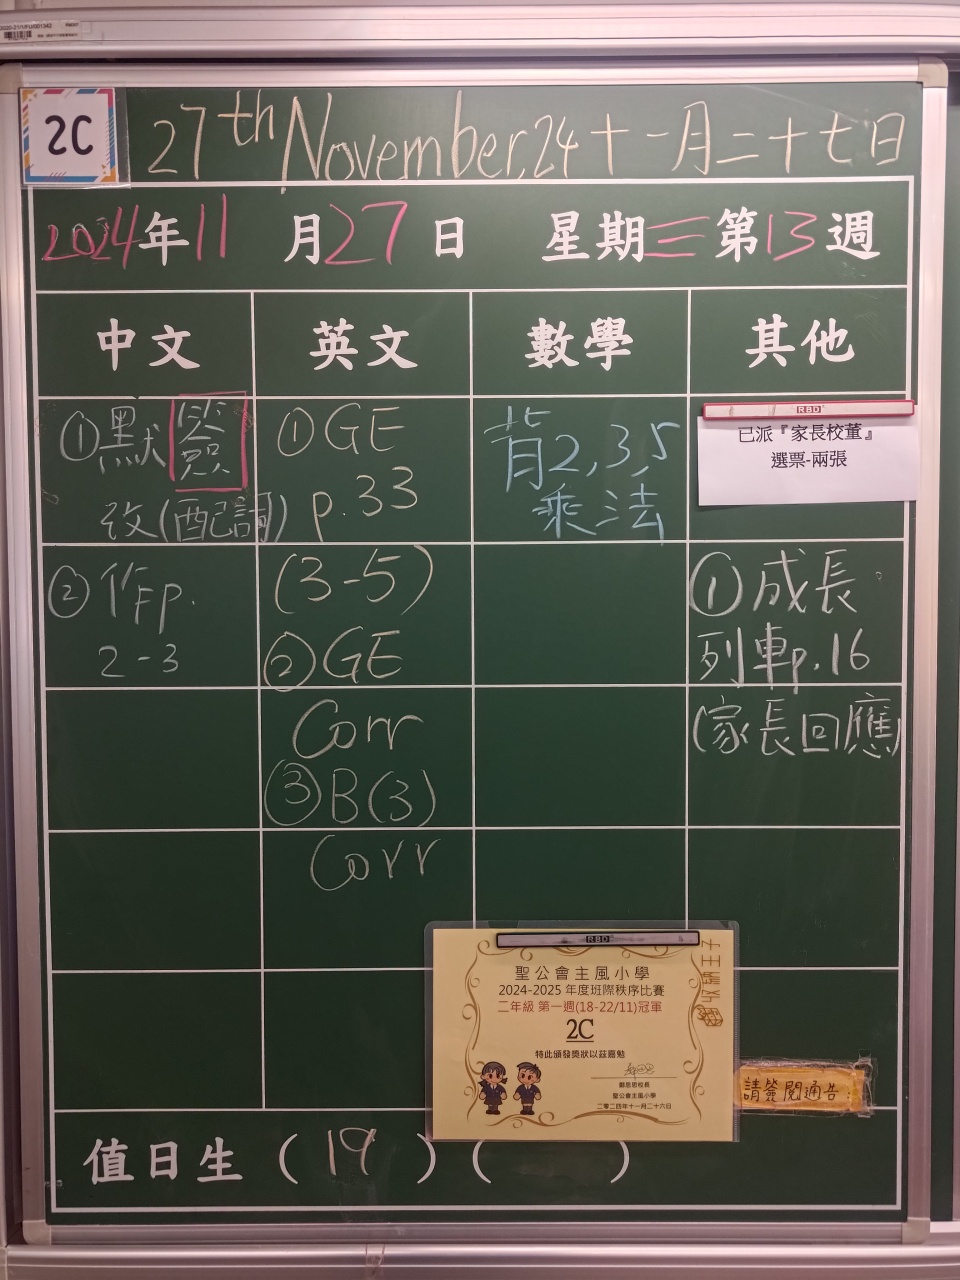 2C
27th November, 24 十一月二十七日
2024年11月27日 星期三 第13週
中文
英文
數學
其他
①默 簽
改(配詞)
②作p.
2-3
①GE
p.33
(3-5)
②GE
Corr
③B(3)
Corr
背2,3,5
乘法
RBD
已派『家長校董』
選票-兩張
①成長
列車p.16
(家長回應)
RBD
聖公會主風小學
2024-2025 年度班際秩序比賽
二年級 第一週(18-22/11)冠軍
2C
特此頒發獎狀以茲嘉勉
鄭思思校長
聖公會主風小學
二零二四年十一月二十六日
請簽閱通告:
值日生 ( 19 ) ( )